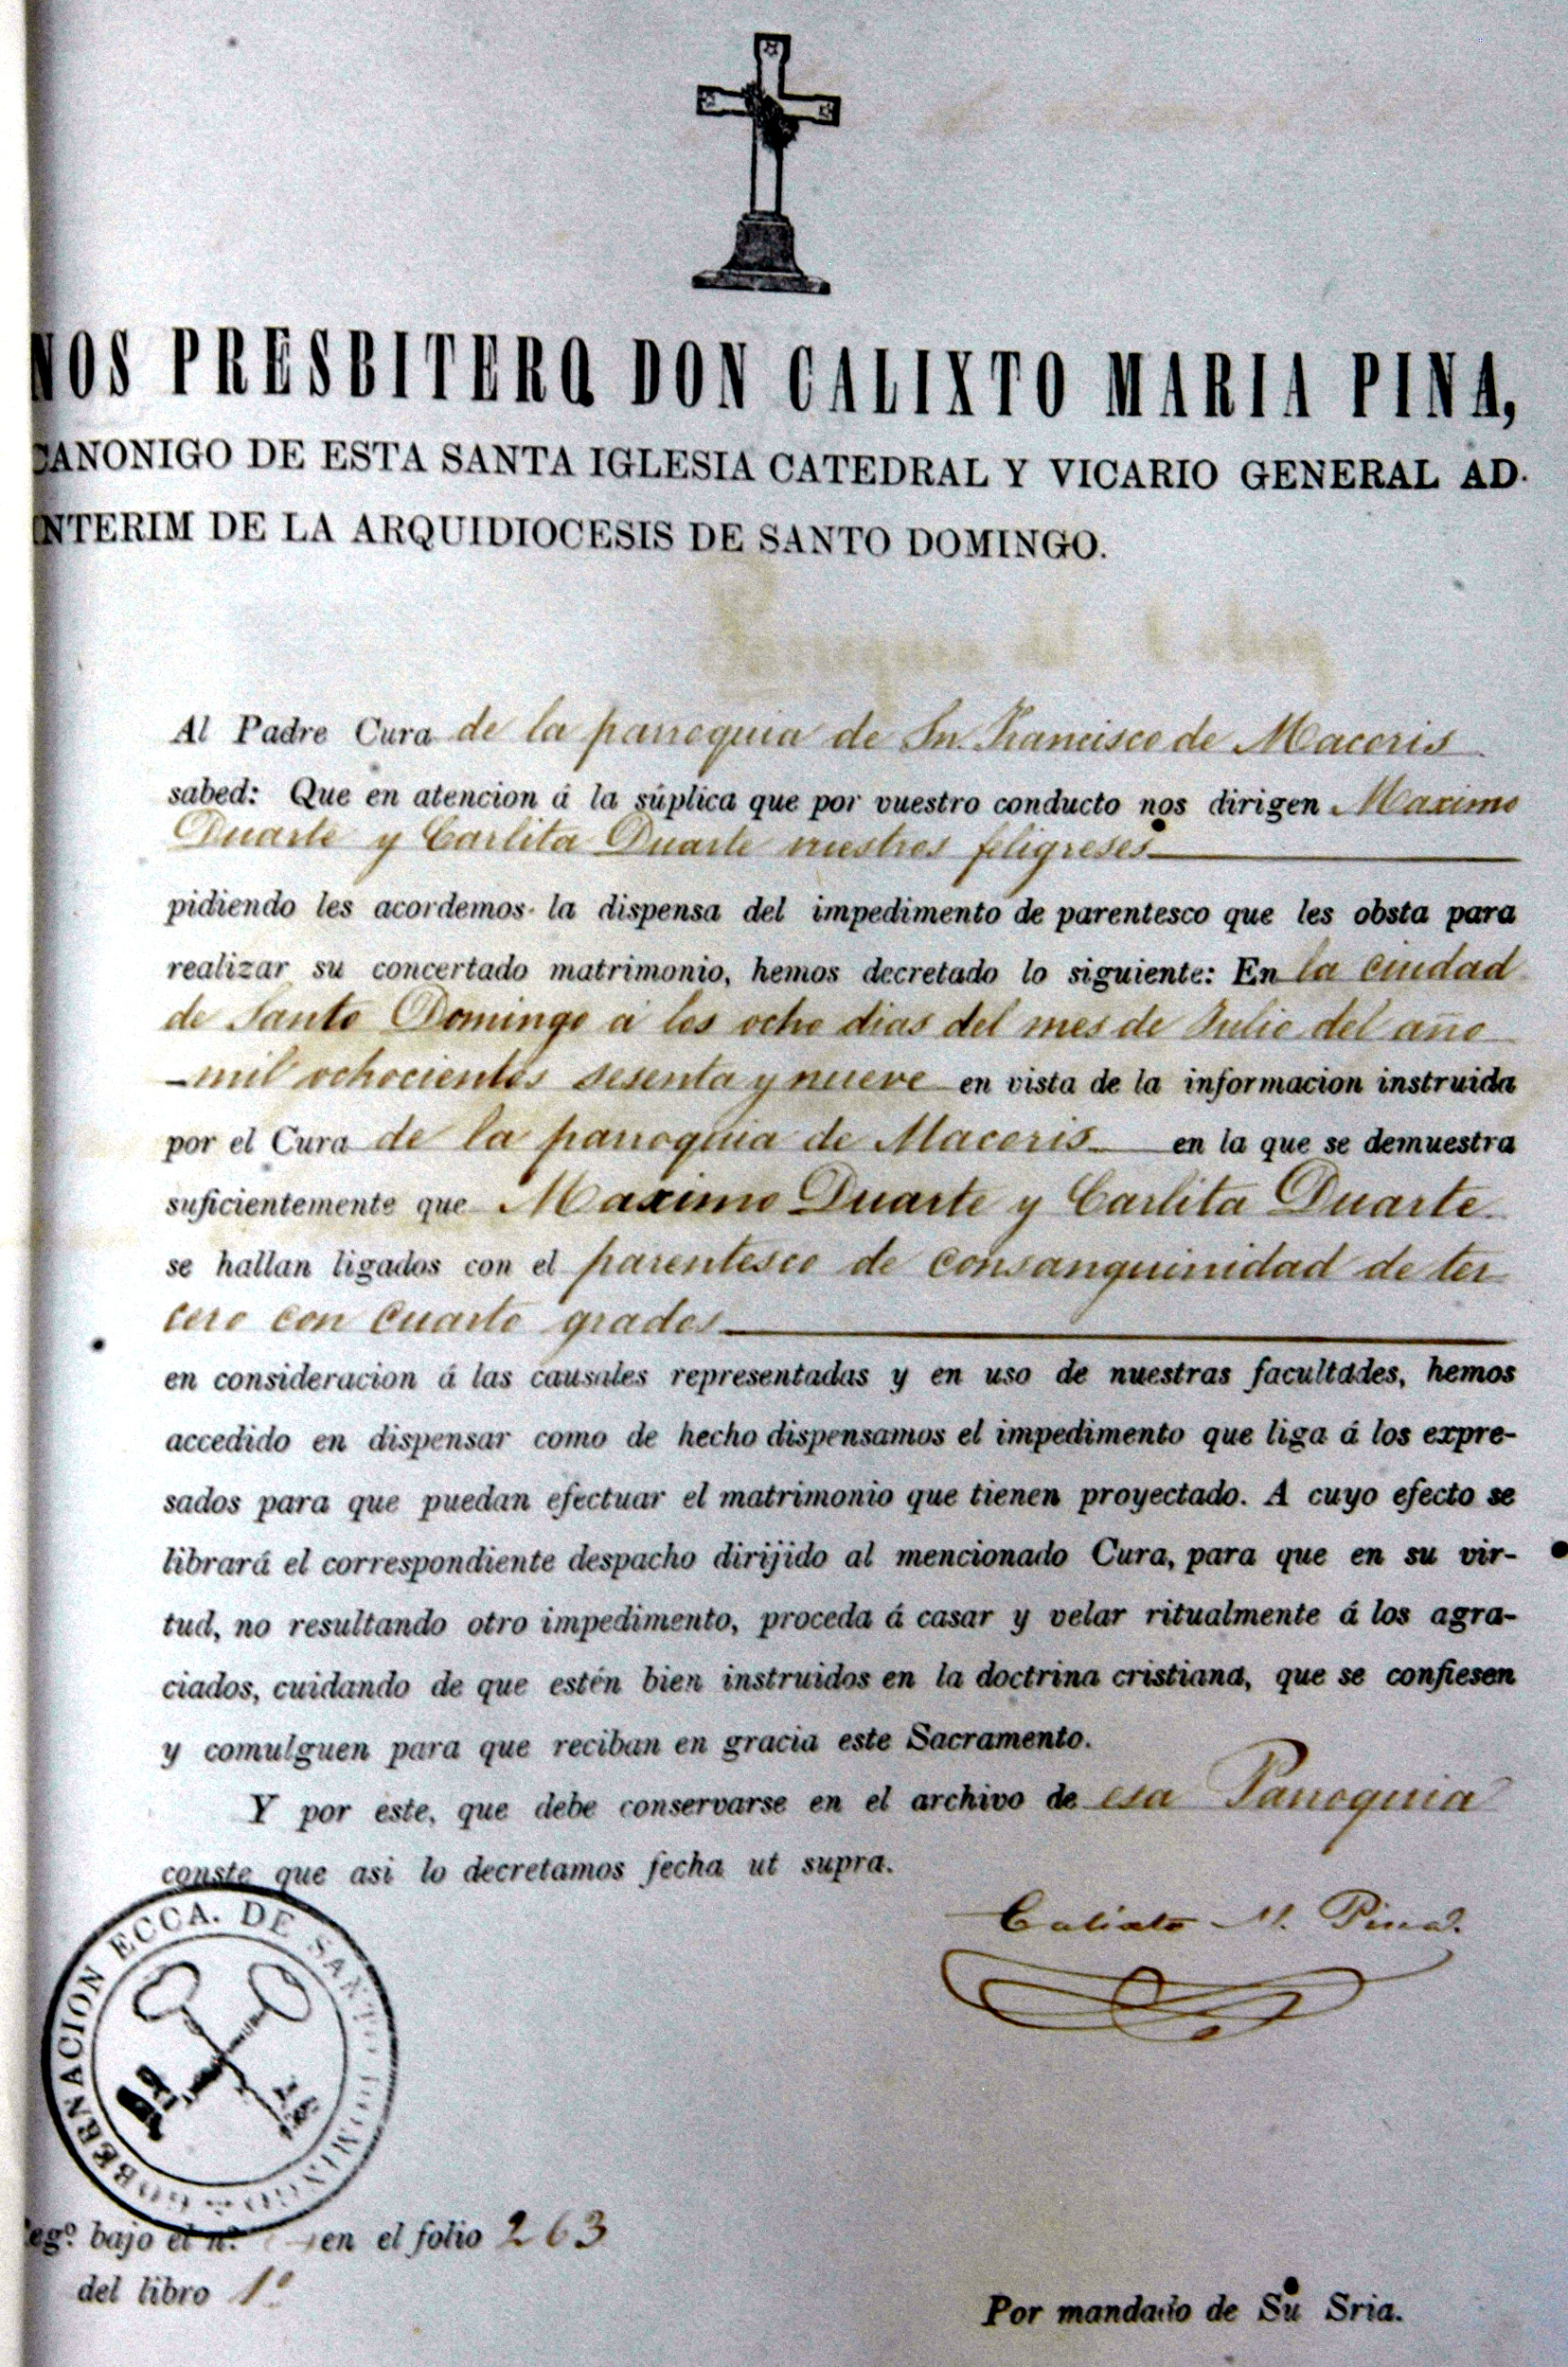 NOS PRESBITERO DON CALIXTO MARIA PINA,
CANONIGO DE ESTA SANTA IGLESIA CATEDRAL Y VICARIO GENERAL AD.
INTERIM DE LA ARQUIDIOCESIS DE SANTO DOMINGO.
Al Padre Cura de la parroquia de Sn. Francisco de Macoris
sabed: Que en atencion á la súplica que por vuestro conducto nos dirigen Maximo
Duarte y Carlita Duarte nuestros feligreses
pidiendo les acordemos la dispensa del impedimento de parentesco que les obsta para
realizar su concertado matrimonio, hemos decretado lo siguiente: En la ciudad
de Santo Domingo a los ocho dias del mes de Julio del año
mil ochocientos sesenta y nueve en vista de la informacion instruida
por el Cura de la parroquia de Macoris en la que se demuestra
suficientemente que Maximo Duarte y Carlita Duarte
se hallan ligados con el parentesco de consanguinidad de ter
cero con cuarto grados
en consideracion á las causales representadas y en uso de nuestras facultades, hemos
accedido en dispensar como de hecho dispensamos el impedimento que liga á los expre-
sados para que puedan efectuar el matrimonio que tienen proyectado. A cuyo efecto se
librará el correspondiente despacho dirijido al mencionado Cura, para que en su vir-
tud, no resultando otro impedimento, proceda á casar y velar ritualmente á los agra-
ciados, cuidando de que estén bien instruidos en la doctrina cristiana, que se confiesen
y comulguen para que reciban en gracia este Sacramento.
Y por este, que debe conservarse en el archivo de esa Parroquia
conste que asi lo decretamos fecha ut supra.
Calixto M. Pina.
GOBERNACION ECCA. DE SANTO DOMINGO
Regº. bajo el nº. en el folio 263
del libro 1º
Por mandado de Su Sria.